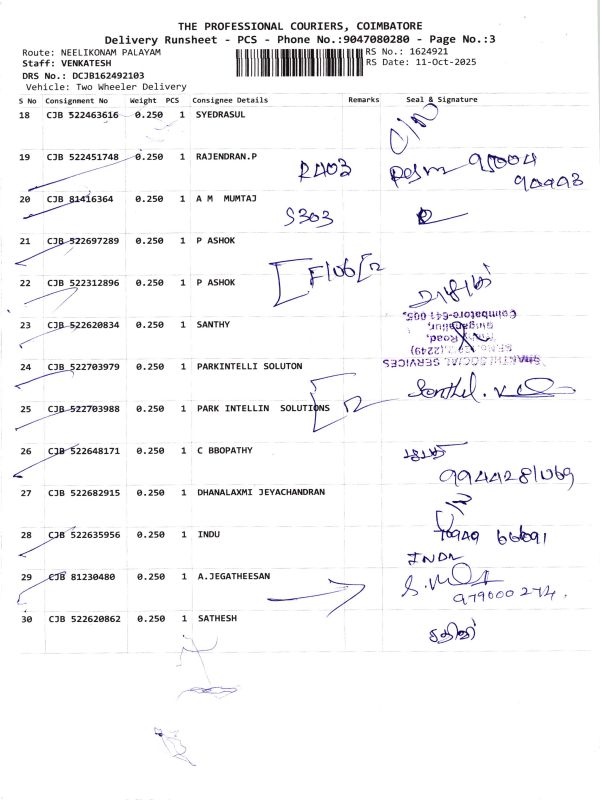 THE PROFESSIONAL COURIERS, COIMBATORE
Delivery Runsheet - PCS - Phone No.:9047080280 - Page No.:3
Route: NEELIKONAM PALAYAM RS No.: 1624921
Staff: VENKATESH RS Date: 11-Oct-2025
DRS No.: DCJB162492103
Vehicle: Two Wheeler Delivery
S No Consignment No Weight PCS Consignee Details Remarks Seal & Signature
18 CJB 522463616 0.250 1 SYEDRASUL
19 CJB 522451748 0.250 1 RAJENDRAN.P
R403
20 CJB 81416364 0.250 1 A M MUMTAJ
S303
21 CJB 522697289 0.250 1 P ASHOK
22 CJB 522312896 0.250 1 P ASHOK
F106
Coimbatore-641 005.
23 CJB 522620834 0.250 1 SANTHY
Road,
SHAKTHI SOCIAL SERVICES
24 CJB 522703979 0.250 1 PARKINTELLI SOLUTON
25 CJB 522703988 0.250 1 PARK INTELLIN SOLUTIONS
26 CJB 522648171 0.250 1 C BBOPATHY
9944281069
27 CJB 522682915 0.250 1 DHANALAXMI JEYACHANDRAN
28 CJB 522635956 0.250 1 INDU
66691
INDU
29 CJB 81230480 0.250 1 A.JEGATHEESAN
30 CJB 522620862 0.250 1 SATHESH
சதிஷ்